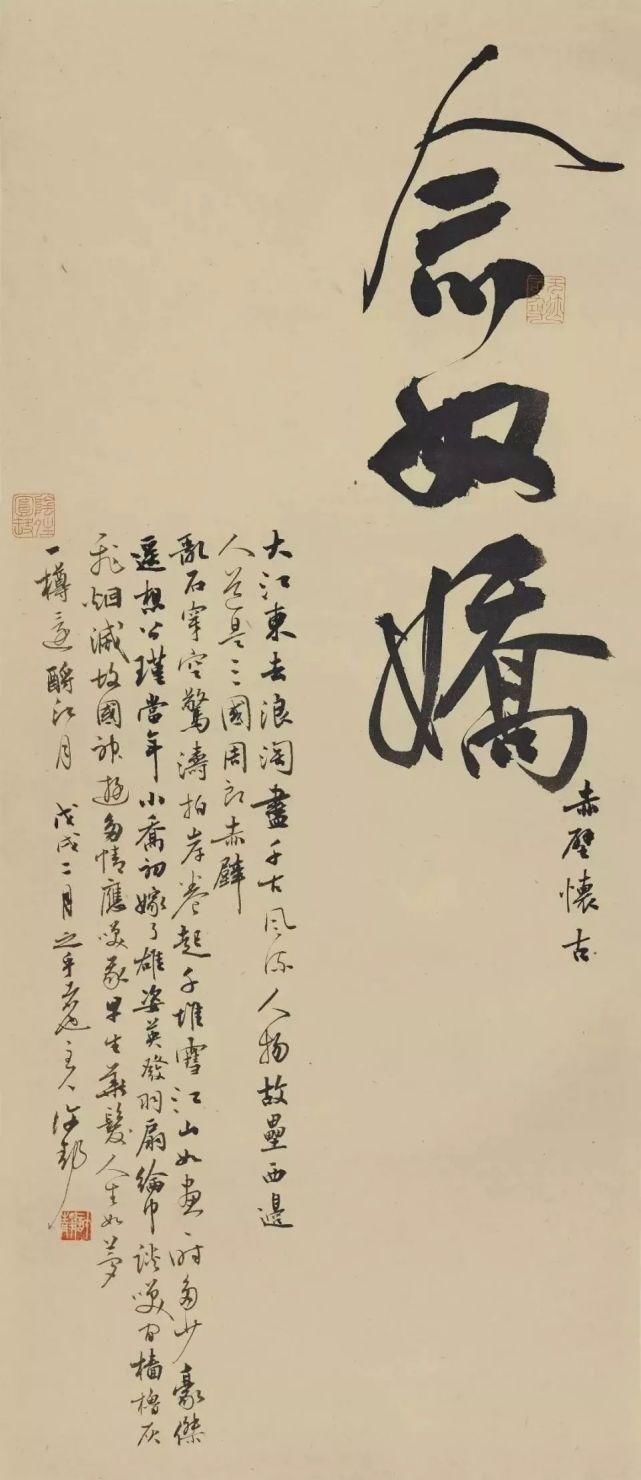 念奴嬌
赤壁懷古
大江東去浪淘盡千古風流人物故壘西邊
人道是三國周郎赤壁
亂石穿空驚濤拍岸卷起千堆雪江山如畫一時多少豪傑
遥想公瑾當年小喬初嫁了雄姿英發羽扇綸巾談咲間檣櫓灰
飛烟滅故國神遊多情應咲我早生華髮人生如夢
一樽還酹江月 戊戌二月之乎者也主人